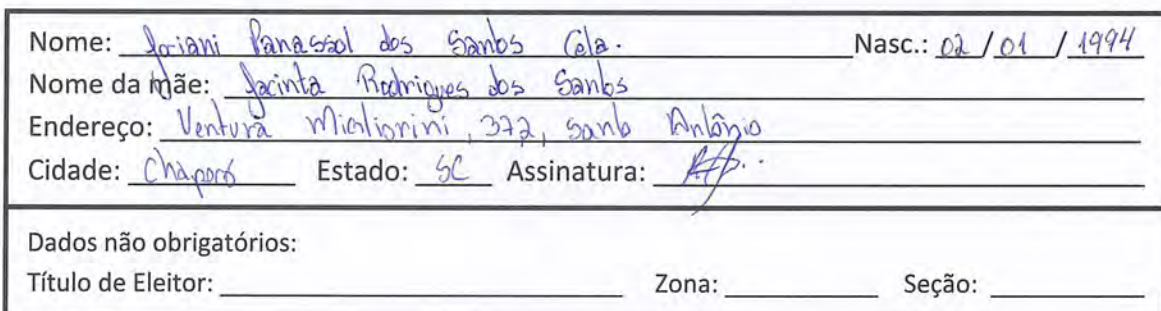 Nome: Joriani Panassol dos Santos Cela. Nasc.: 02 / 01 / 1994
Nome da mãe: Jacinta Rodrigues dos Santos
Endereço: Ventura Migliorini, 372, Santo Antônio
Cidade: Chapecó Estado: SC Assinatura:
Dados não obrigatórios:
Título de Eleitor: Zona: Seção: